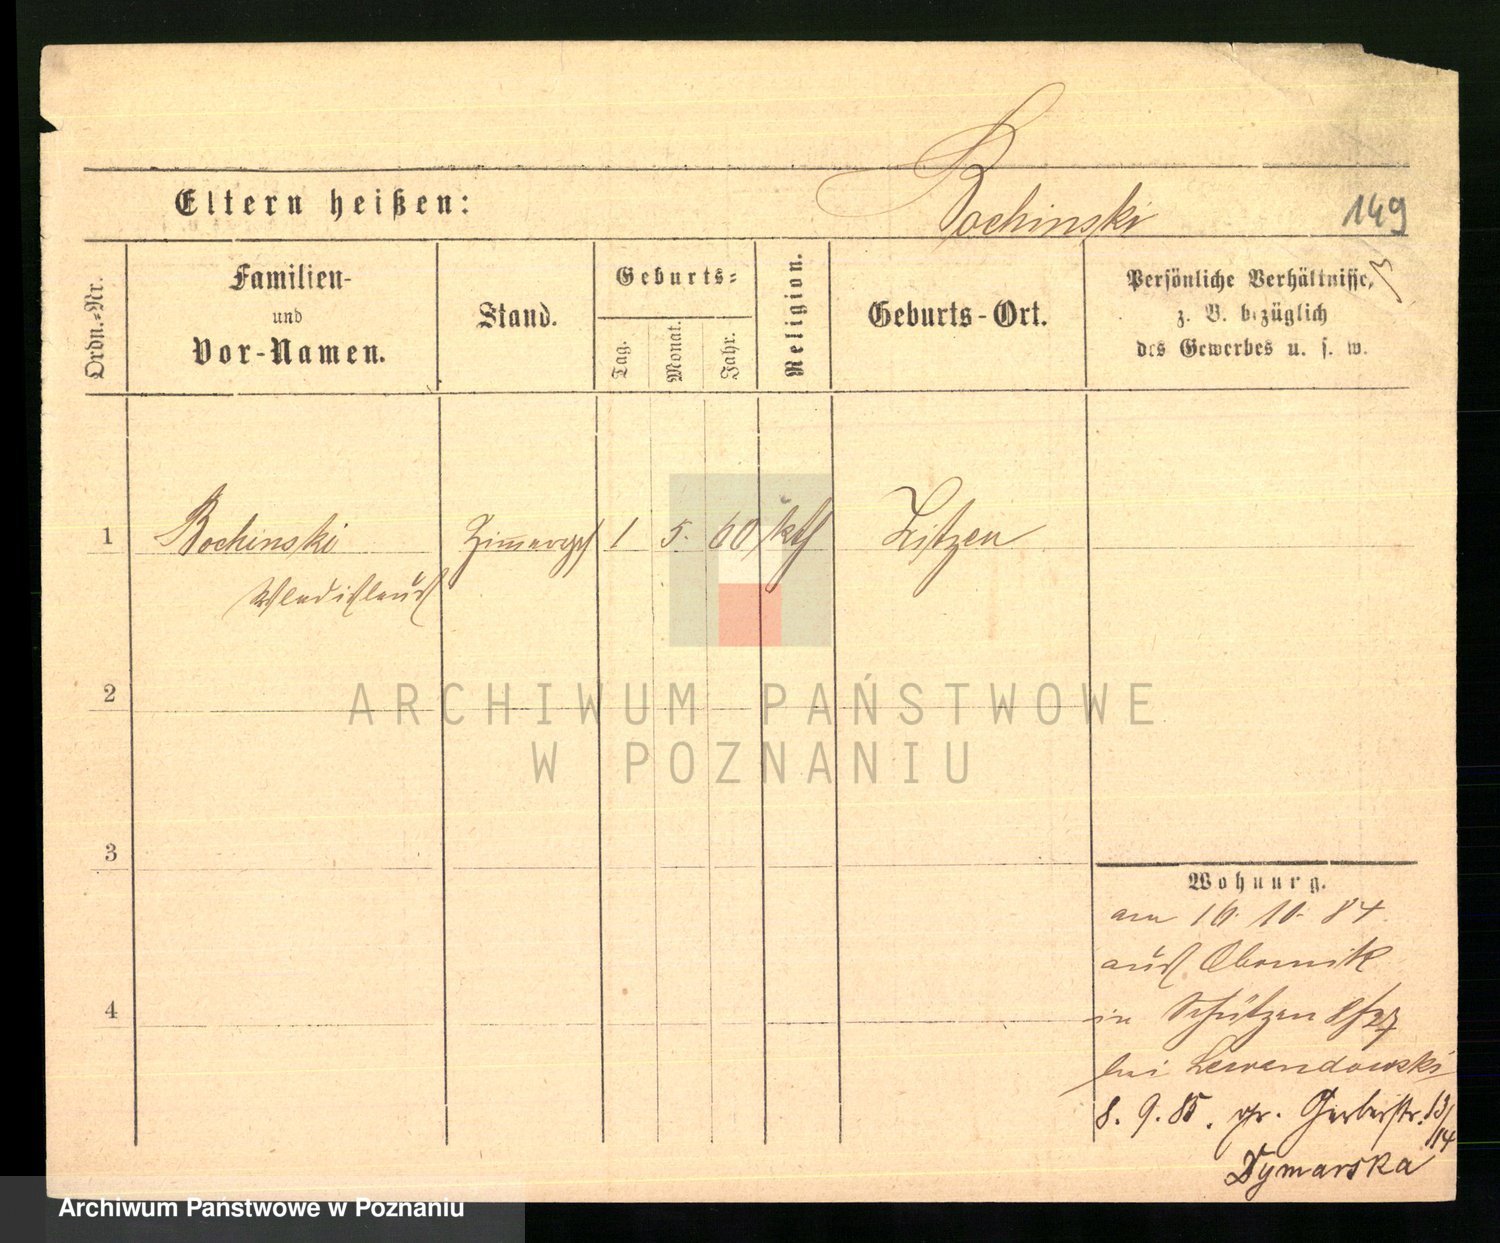 Bochinski
Eltern heißen:
149
Ordn.-Nr.
Familien-
und
Vor-Namen.
Stand.
Geburts-
Tag.
Monat.
Jahr.
Religion.
Geburts-Ort.
Persönliche Verhältnisse,
z. B. bezüglich
des Gewerbes u. s. w.
1 Bochinski 1 5. 60 kth Litzen
Wladislaus
2
ARCHIWUM PAŃSTWOWE
W POZNANIU
3
Wohnung.
am 16. 10. 84.
aus Obornik
4
in Schützen 8/27
bei Lewandowski
8. 9. 85. gr. Gerberstr. 13/14
Dymarska
Archiwum Państwowe w Poznaniu